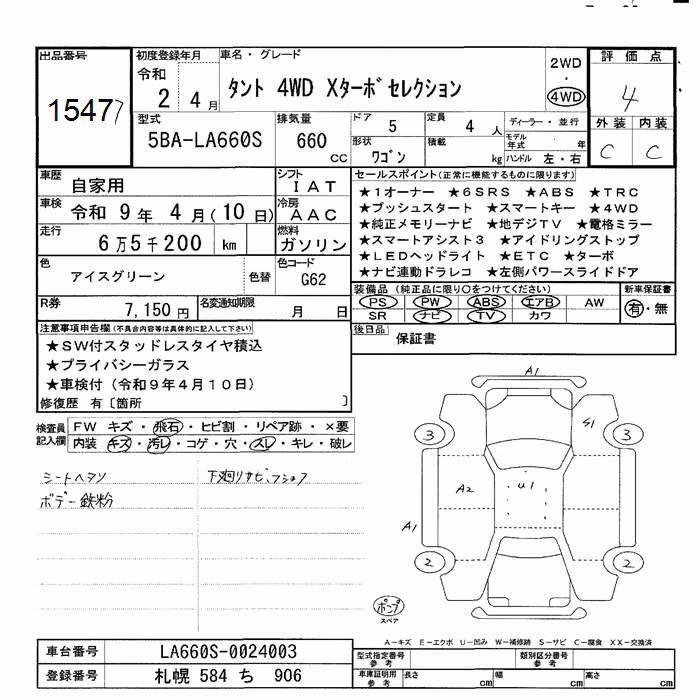 出品番号
1547
初度登録年月
令和
2 4 月
車名・グレード
タント 4WD Xターボセレクション
2WD
・
4WD
評価点
4
外装 内装
C C
型式
5BA-LA660S
排気量
660
CC
ドア
5
定員
4 人
ディーラー・並行
形状
ワゴン
積載
kg
モデル年式 年
ハンドル 左・右
車歴
自家用
シフト
IAT
車検
令和 9 年 4 月(10 日)
冷房
AAC
走行
6万5千200 km
燃料
ガソリン
色
アイスグリーン
色替
色コード
G62
R券
7,150 円
名変通知期限
月 日
セールスポイント(正常に機能するものに限ります)
★1オーナー ★6SRS ★ABS ★TRC
★プッシュスタート ★スマートキー ★4WD
★純正メモリーナビ ★地デジTV ★電格ミラー
★スマートアシスト3 ★アイドリングストップ
★LEDヘッドライト ★ETC ★ターボ
★ナビ連動ドラレコ ★左側パワースライドドア
装備品(純正品に限り○をつけてください)
PS PW ABS エアB AW
SR ナビ TV カワ
新車保証書
有・無
後日品
保証書
注意事項申告欄(不具合内容等は具体的に記入して下さい)
★SW付スタッドレスタイヤ積込
★プライバシーガラス
★車検付(令和9年4月10日)
修復歴 有〔箇所 〕
検査員記入欄
FW キズ・飛石・ヒビ割・リペア跡・×要
内装 キズ・汚レ・コゲ・穴・スレ・キレ・破レ
シートヘタリ
下廻りサビ、
ボデー鉄粉
A1
3
S1
3
A2
U1
A1
2
2
ポンプ
スペア
A-キズ E-エクボ U-凹み W-補修跡 S-サビ C-腐食 XX-交換済
車台番号
LA660S-0024003
登録番号
札幌 584 ち 906
型式指定番号 参考
類別区分番号 参考
車庫証明用 参考
長さ cm
幅 cm
高さ cm